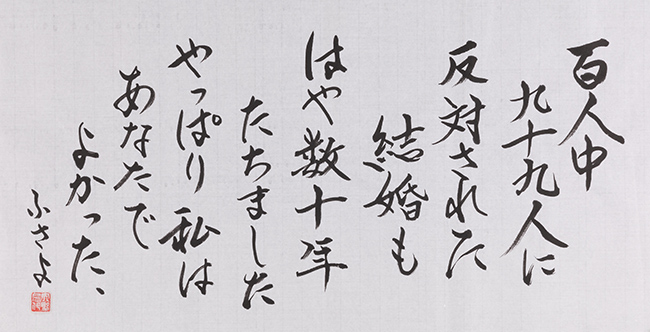 百人中
九十九人に
反対された
結婚も
はや数十年
たちました
やっぱり私は
あなたで
よかった、
ふさよ